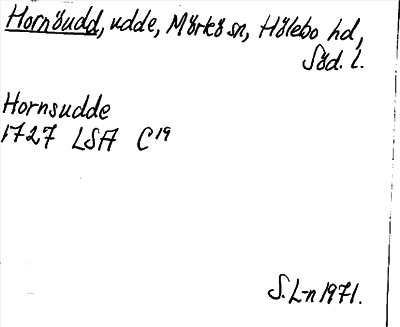 Hornöudd, udde, Mörkö sn, Hölebo hd,
Söd. l.
Hornsudde
1727 LSA C19
S. L-n 1971.